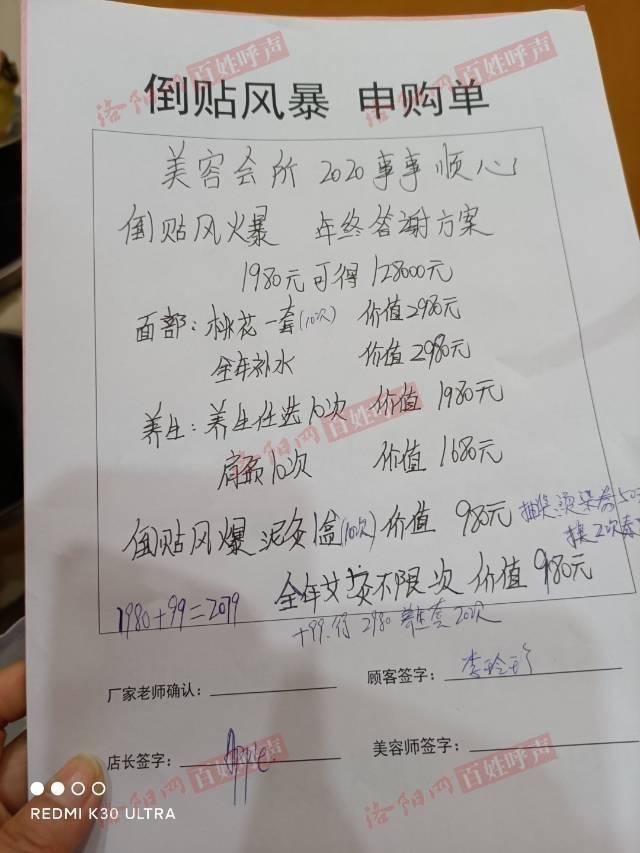 倒贴风暴 申购单
美容会所 2020事事顺心
倒贴风火暴 年终答谢方案
1980元可得 128000元
面部: 桃花一套(10次) 价值2980元
全年补水 价值2980元
养生: 养生任选10次 价值 1980元
肩颈10次 价值 1680元
倒贴风爆 泥灸1盒(10次) 价值 980元 抽奖 烫染卷50
换2次卷
全年艾灸不限次 价值 980元
1980+99=2079
+99.得 2980 养生套 20次
厂家老师确认:
顾客签字: 李玲珍
店长签字: Apple
美容师签字:
洛阳网 百姓呼声
洛阳网 百姓呼声
洛阳网 百姓呼声
洛阳网 百姓呼声
洛阳网 百姓呼声
REDMI K30 ULTRA